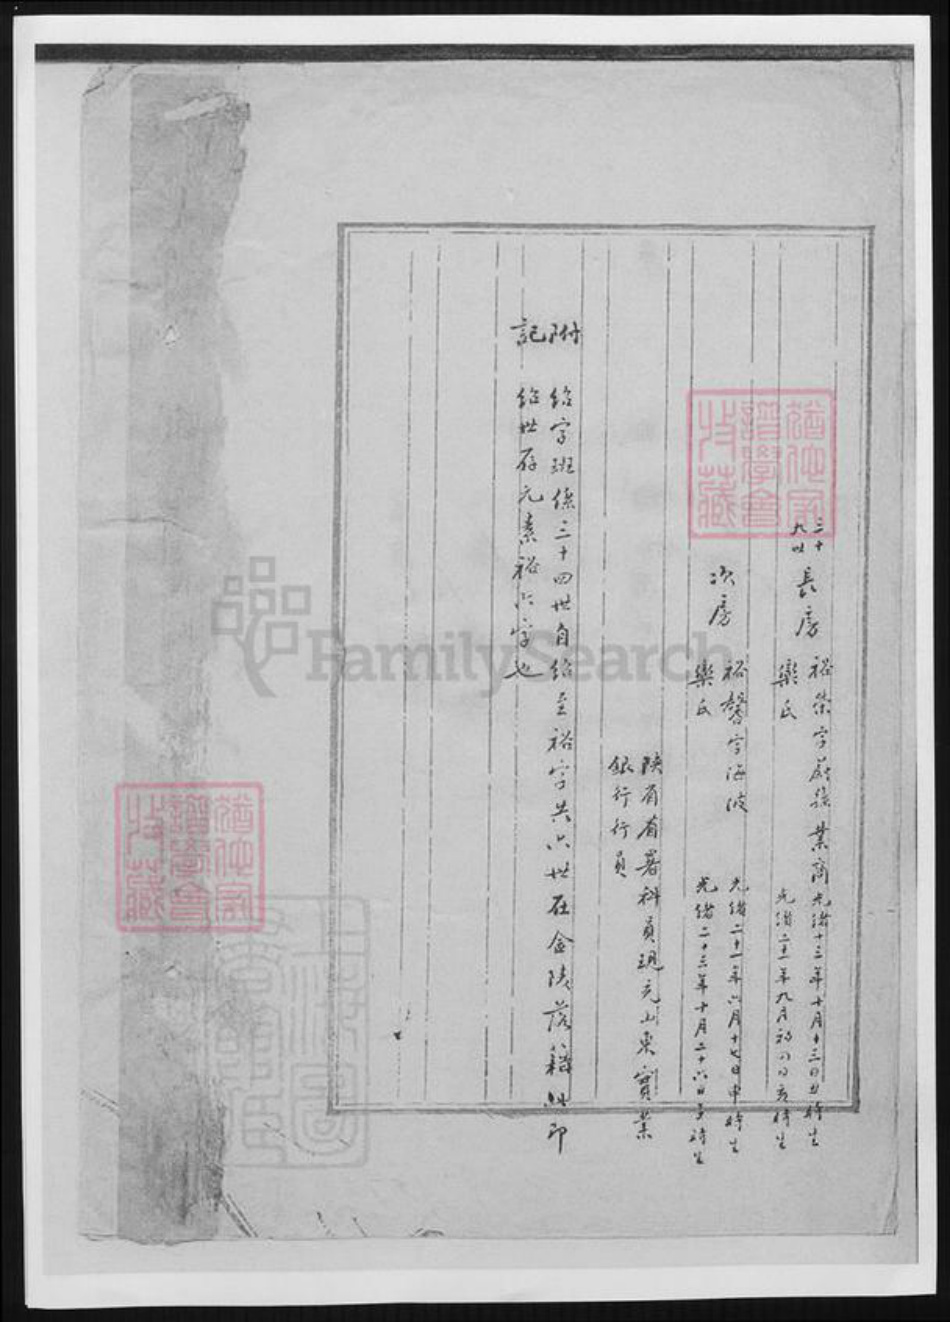 三十
九世
長房
裕榮字蔚蓀業商光緒十三年十月十三日丑時生
欒氏
光緒二十一年九月初八日亥時生
次房
裕馨字海波
光緒二十一年六月十七日申時生
欒氏
光緒二十三年十月二十六日子時生
陝省省署科員現充山東實業
銀行行員
附記
紹字班係三十四世自紹至裕字共六世在金陵落籍此即
紹世存元素裕六字也
猶他家
譜學會
收藏
猶他家
譜學會
收藏
FamilySearch